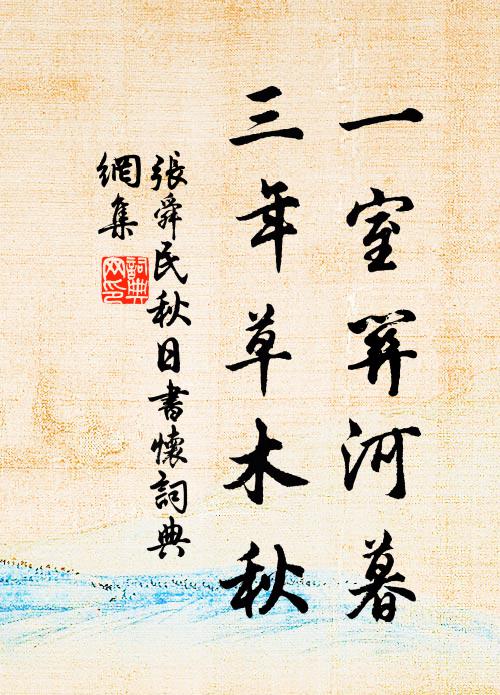 一室關河暮
三年草木秋
張舜民秋日書懷詞典
網集
詞典
网印